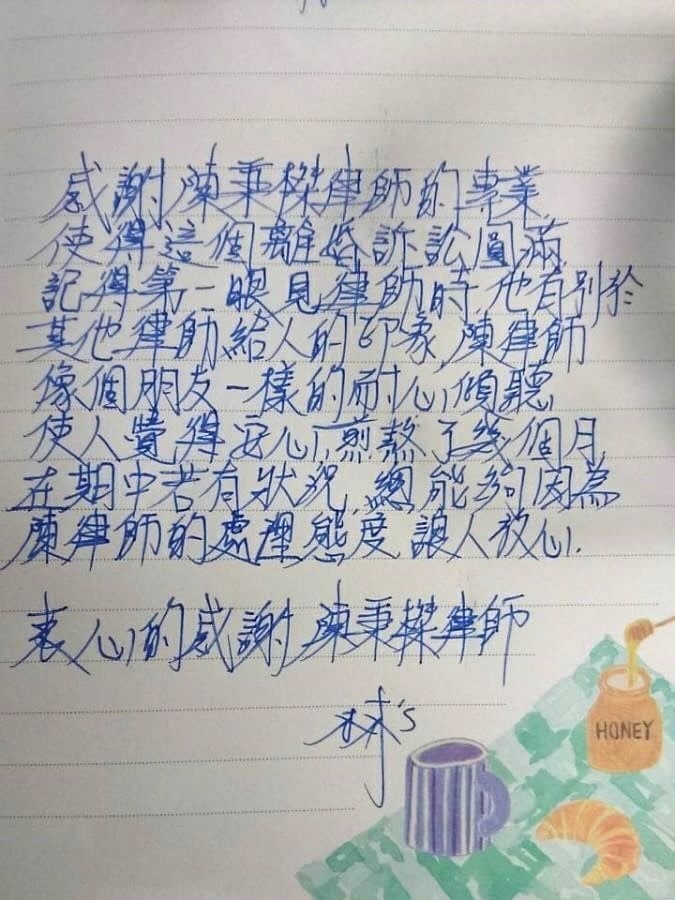 感謝陳秉榤律師的專業
使得這個離婚訴訟圓滿
記得第一眼見律師時 他有別於
其他律師給人的印象,陳律師
像個朋友一樣的耐心傾聽
使人覺得安心,煎熬了幾個月
在期中若有狀況,總能夠因為
陳律師的處理態度讓人放心.
衷心的感謝陳秉榤律師
林's
HONEY